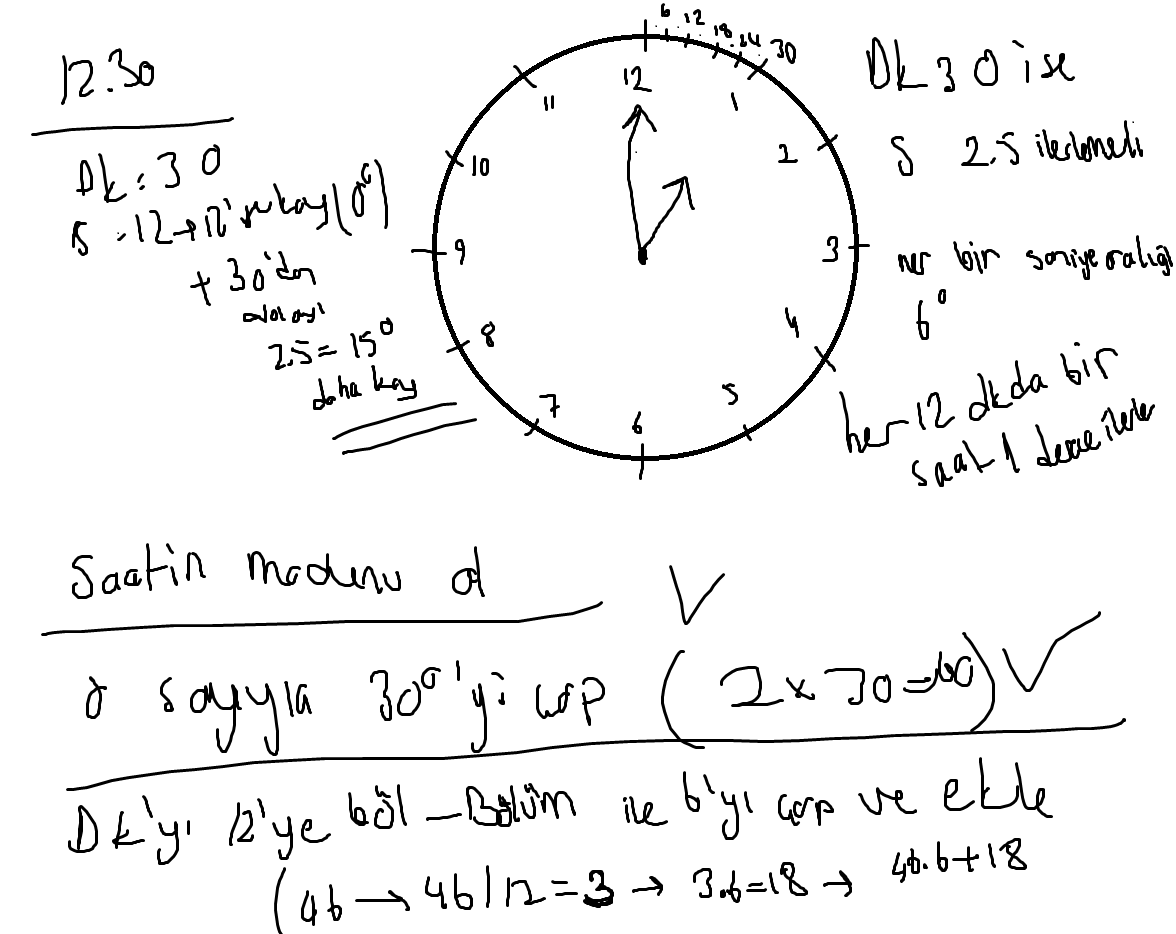 12.30
Dk: 30
S: 12 → 12'ye kay (0°)
+ 30'dan
dolayı
2.5 = 15°
daha kay
6 12 18 24 30
12
11
1
10
2
9
3
8
4
7
5
6
Dk 30 ise
S 2.5 ilerlemeli
her bir saniye aralığı
6°
her 12 dkda bir
saat 1 derece ilerler
Saatin modunu al
o sayıyla 30°'yi çarp (2 x 30 = 60)
Dk'yı 12'ye böl - Bölüm ile 6'yı çarp ve ekle
(46 → 46/12 = 3 → 3.6=18 → 46.6+18